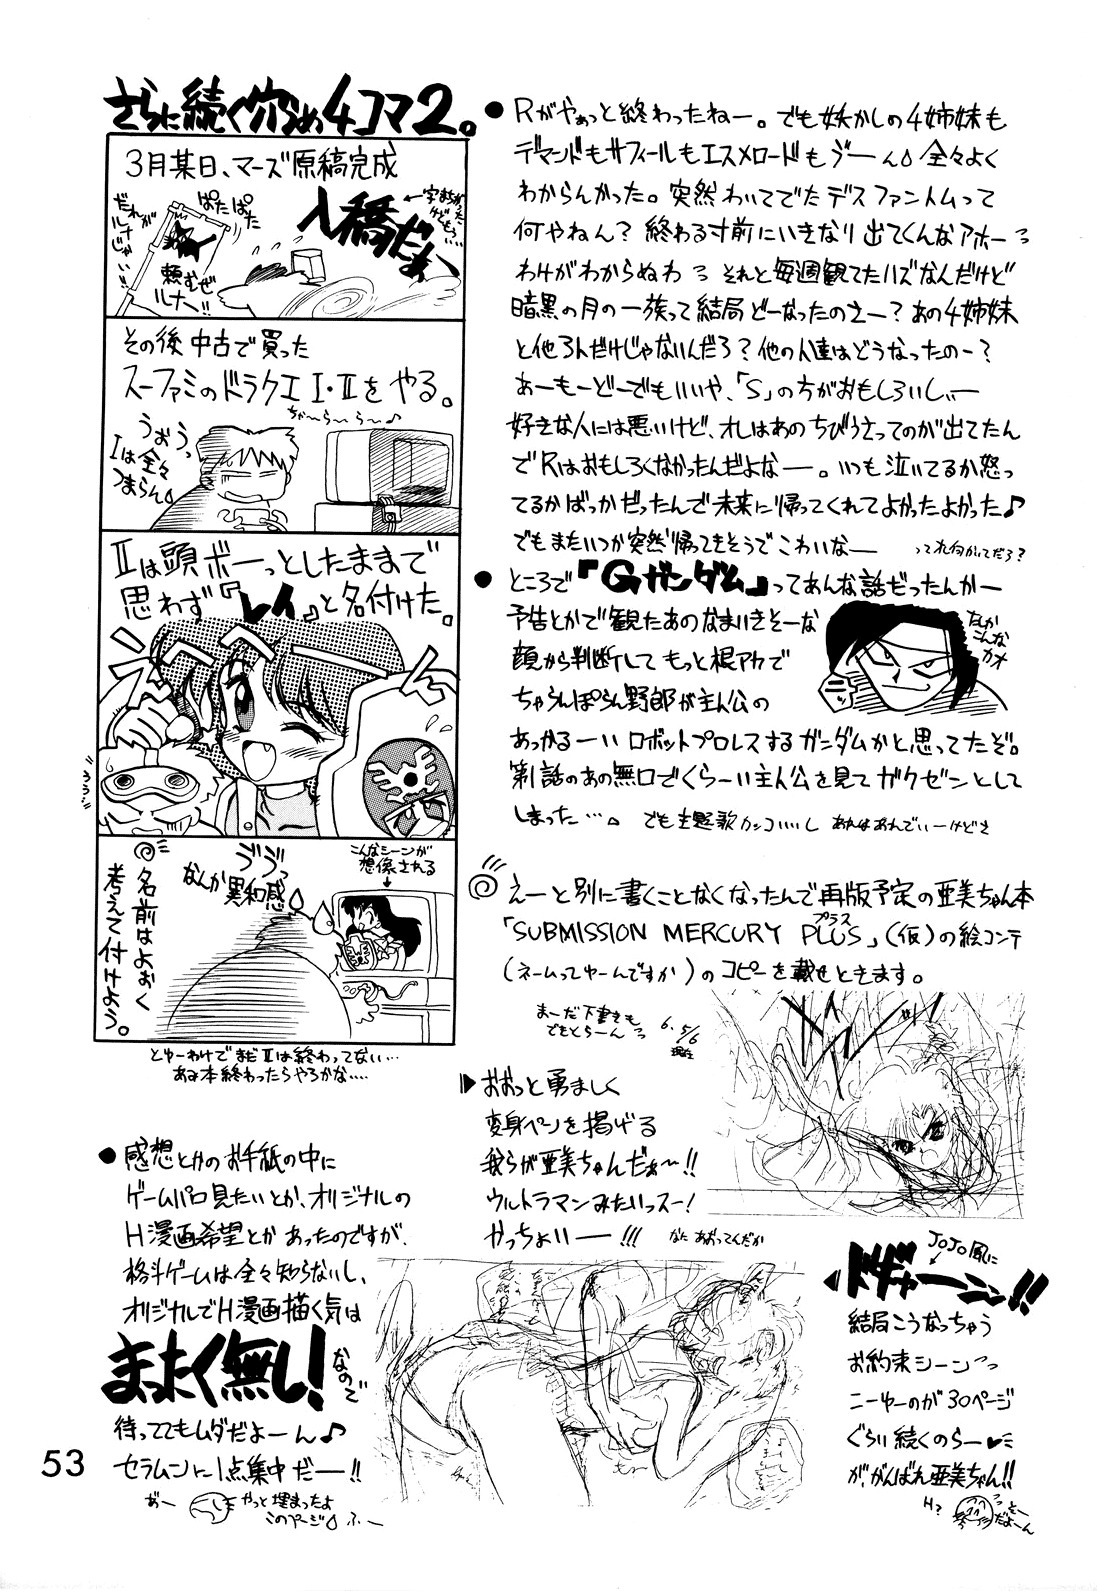 さらに続く穴うめ4コマ2。
3月某日、マーズ原稿完成
入稿だぁ
ぱたぱた
だれが
ルナじゃい!!
頼むぜ
ルナー!!
その後 中古で買った
スーファミのドラクエⅠ・Ⅱをやる。
ちゃ〜ら〜ら〜♪
うおぅっ
Ⅰは全々
つまらん
Ⅱは頭ボーっとしたままで
思わず『レイ』と名付けた。
こんなシーンが
想像される
なんか異和感
名前はよぉく
考えて付けよう。
とゆーわけでまだⅡは終わってない…
あみ本終わったらやろかな….
●感想とかのお手紙の中に
ゲームパロ見たいとか、オリジナルの
H漫画希望とかあったのですが、
格斗ゲームは全々知らないし、
オリジナルでH漫画描く気は
まったく無し!なので
待っててもムダだよーん♪
セラムンに1点集中だー!!
おー
やっと埋まったよ
このページ ふー
●Rがやぁっと終わったねー。でも妖かしの4姉妹も
デマンドもサフィールもエスメロードもゔーん 全々よく
わからんかった。突然わいてでたデスファントムって
何やねん?終わる寸前にいきなり出てくんなアホーっ
わけがわからぬわっ それと毎週観てたハズなんだけど
暗黒の月の一族って結局どーなったのさー?あの4姉妹
と他3人だけじゃないんだろ?他の人達はどうなったのー?
あーもーどーでもいいや、「S」の方がおもしろいしぃー
好きな人には悪いけど、オレはあのちびうさってのが出てたん
でRはおもしろくなかったんだよなー。いつも泣いてるか怒っ
てるかばっかだったんで未来に帰ってくれてよかったよかった♪
でもまたいつか突然帰ってきそうでこわいなー
●ところで『Gガンダム』ってあんな話だったんかー
予告とかで観たあのなまいきそーな
顔から判断してもっと根アカで
ちゃらんぽらん野郎が主人公の
あっかるーいロボットプロレスするガンダムかと思ってたぞ。
第1話のあの無口でくらーい主人公を見てガクゼンとして
しまった…。でも主題歌カッコいいし あれはあれでいーけどさ
なんか
こんな
カオ
えーと別に書くことなくなったんで再版予定の亜美ちゃん本
「SUBMISSION MERCURY PLUS」(仮)の絵コンテ
プラス
(ネームってゆーんですか)のコピーを載せときます。
まーだ下書きも
でもとらーんっ
6.5/6
現在
▶おおっと勇ましく
変身ペンを掲げる
我らが亜美ちゃんだぁ〜!!
ウルトラマンみたいっスー!
かっちょいー!!! なに あおってんだか
JOJO風に
◀ドギャーーン!!
結局こうなっちゃう
お約束シーンっ
こーゆーのが30ページ
ぐらい続くのらー♥
が、がんばれ亜美ちゃん!!
H?
そー
だよーん
53